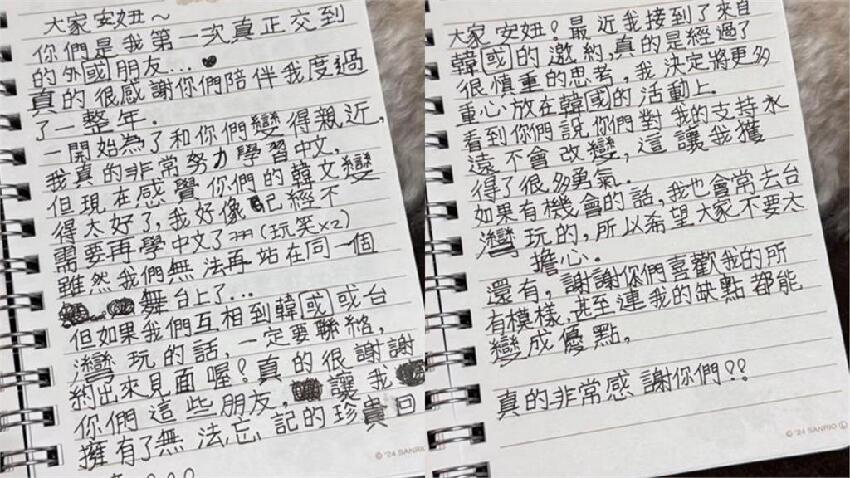 大家安妞~
你們是我第一次真正交到
的外國朋友...
真的很感謝你們陪伴我度過
了一整年.
一開始為了和你們變得親近,
我真的非常努力學習中文,
但現在感覺你們的韓文變
得太好了,我好像已經不
需要再學中文了ㅋㅋ(玩笑x2)
雖然我們無法再站在同一個
舞台上了...
但如果我們互相到韓國或台
灣玩的話,一定要聯絡,
約出來見面喔?真的很謝謝
你們這些朋友.讓我
擁有了無法忘記的珍貴回
© '24 SANRIO
大家安妞?最近我接到了來自
韓國的邀約,真的是經過了
很慎重的思考,我決定將更多
重心放在韓國的活動上.
看到你們說你們對我的支持永
遠不會改變,這讓我獲
得了很多勇氣.
如果有機會的話,我也會常去台
灣玩的,所以希望大家不要太
擔心.
還有,謝謝你們喜歡我的所
有模樣,甚至連我的缺點都能
變成優點,
真的非常感謝你們??
© '24 SANRIO